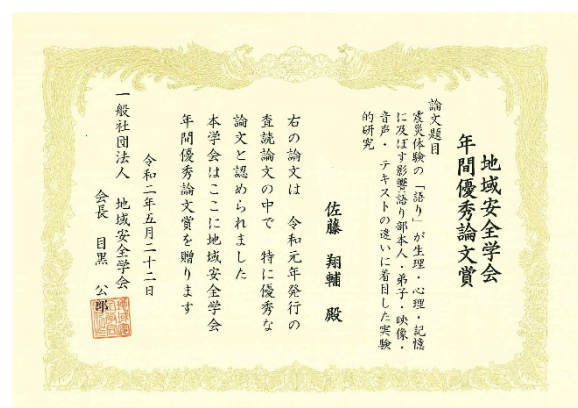 地域安全学会
年間優秀論文賞
論文題目
震災体験の「語り」が生理・心理・記憶
に及ぼす影響語り部本人・弟子・映像・
音声・テキストの違いに着目した実験
的研究
佐藤 翔輔 殿
右の論文は 令和元年発行の
査読論文の中で 特に優秀な
論文と認められました
本学会はここに地域安全学会
年間優秀論文賞を贈ります
令和二年五月二十二日
一般社団法人 地域安全学会
会長 目黒 公郎